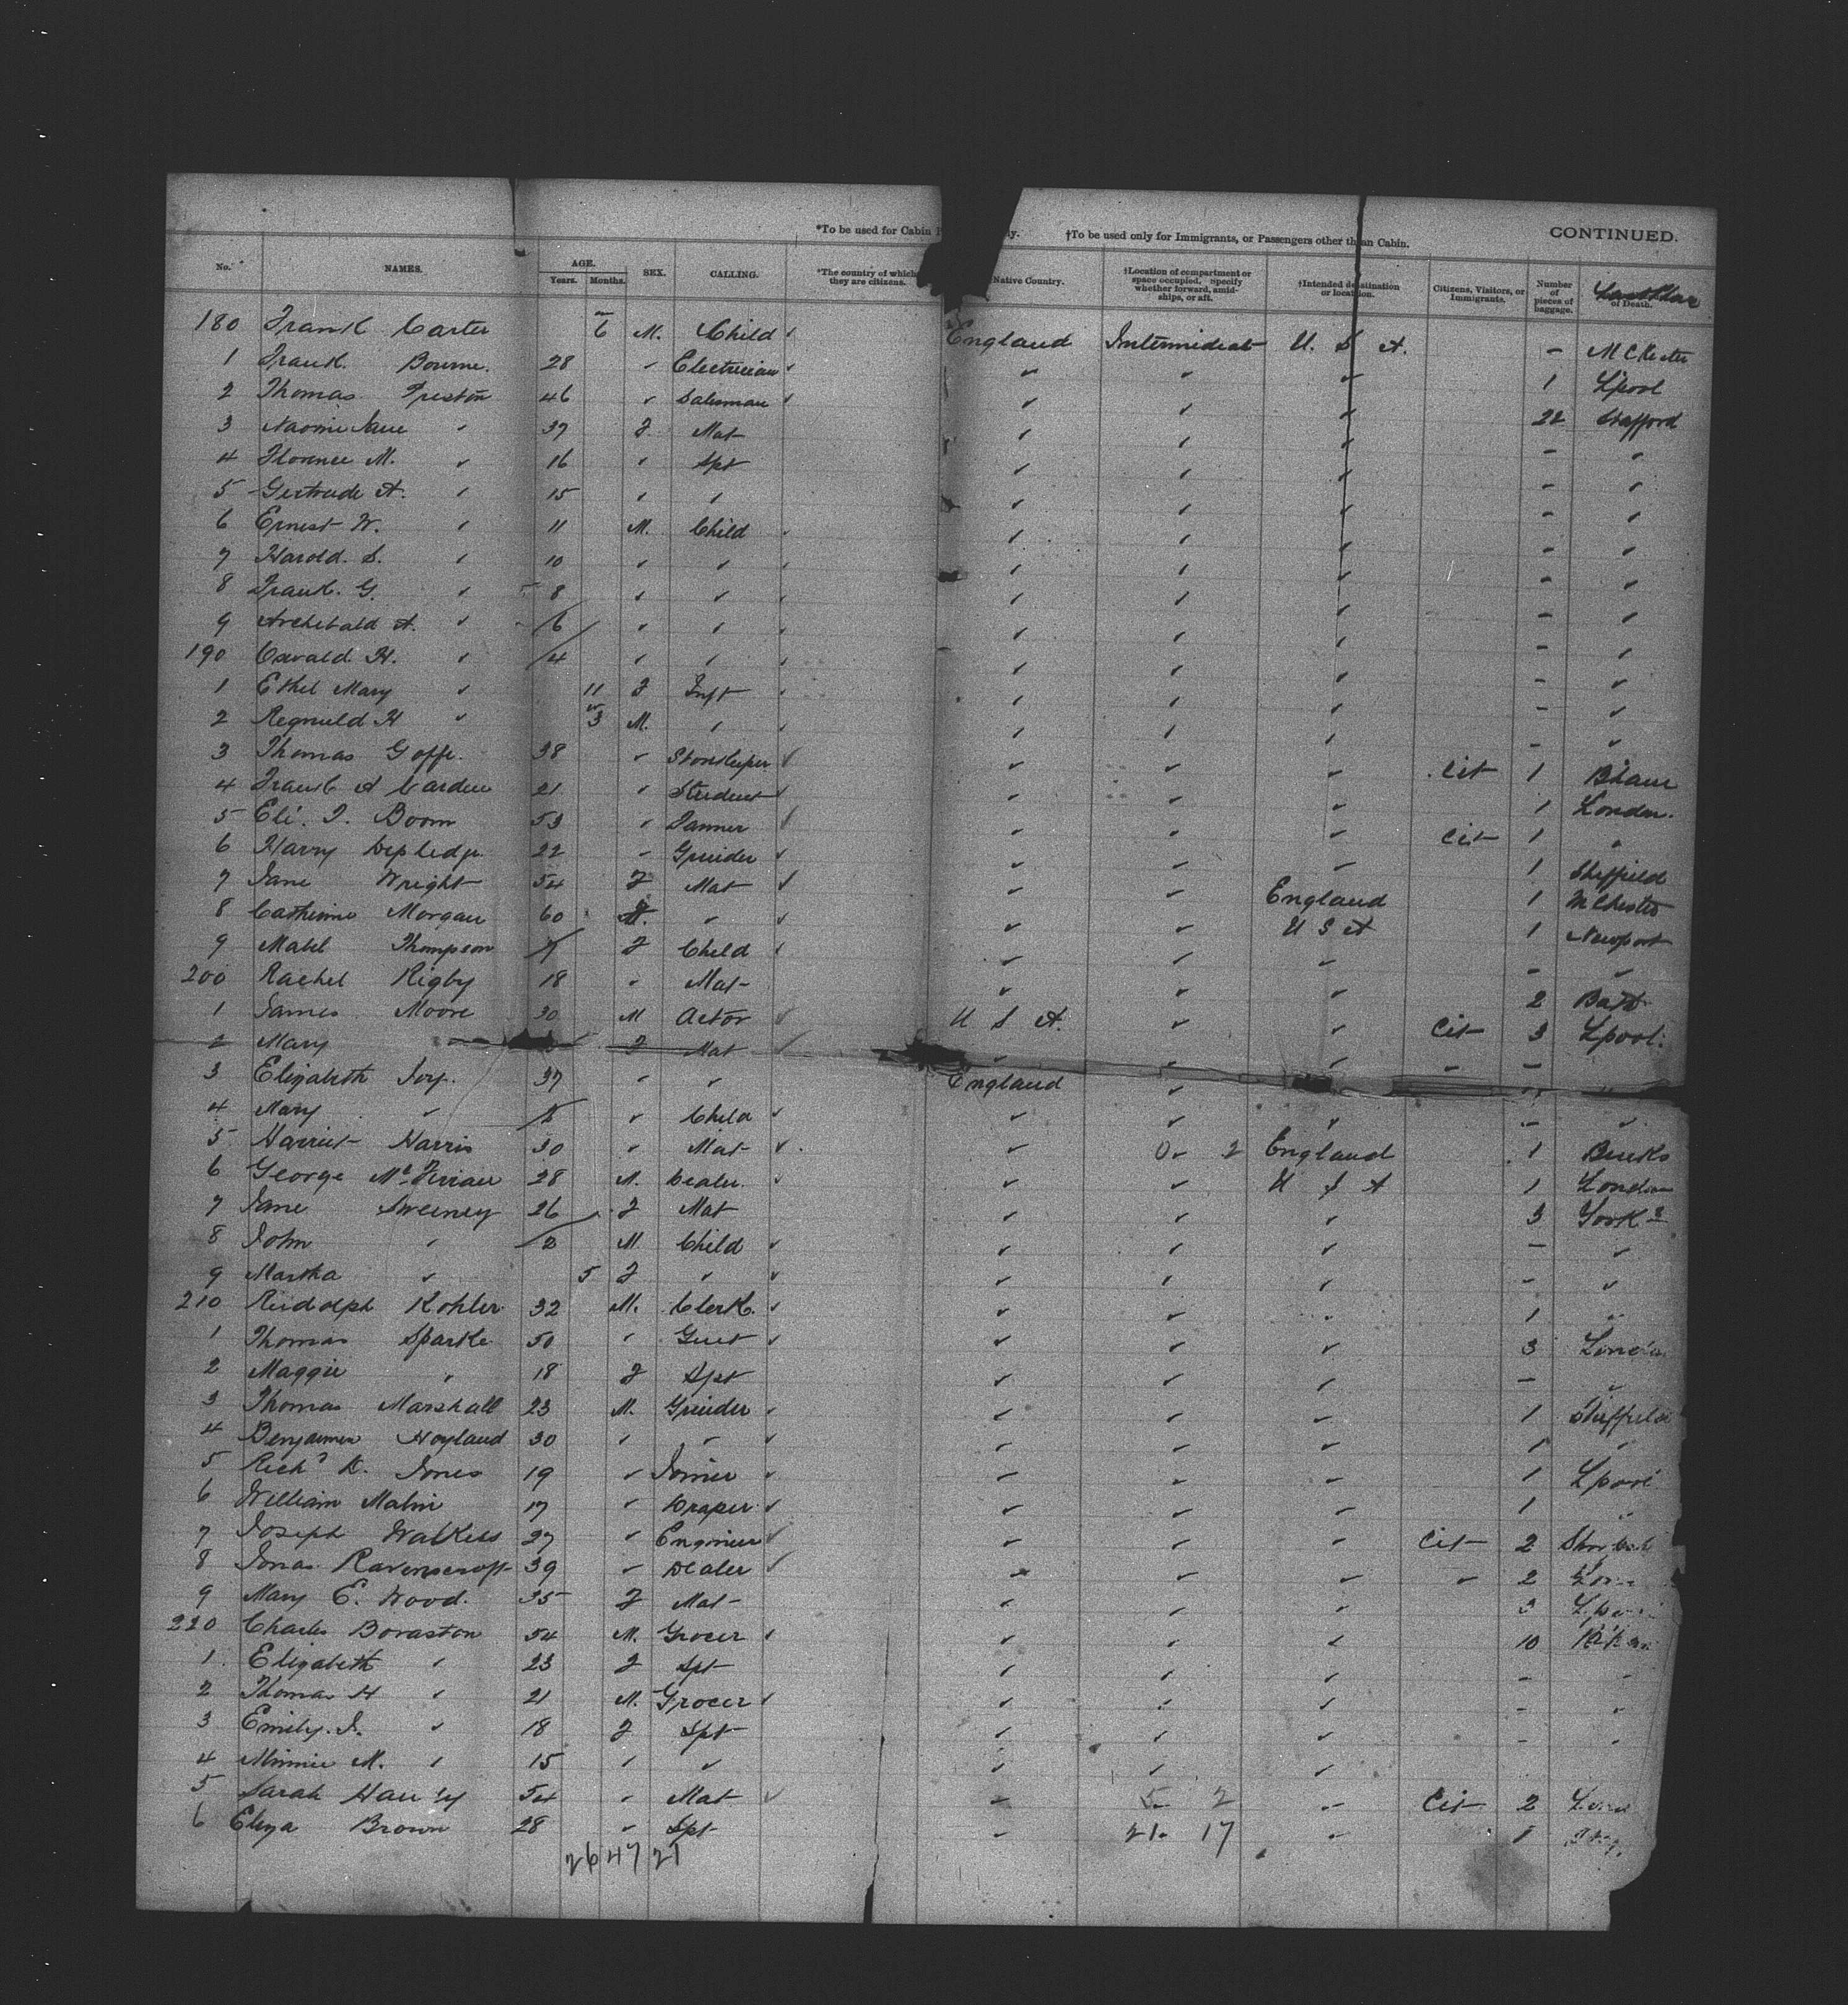 *To be used for Cabin P ly. †To be used only for Immigrants, or Passengers other than Cabin. CONTINUED.
No. NAMES. AGE. Years. Months. SEX. CALLING. *The country of which they are citizens. Native Country. †Location of compartment or space occupied. Specify whether forward, amidships, or aft. †Intended destination or location. Citizens, Visitors, or Immigrants. Number of pieces of baggage. of Death.
180 Frank Carter 6 M. Child England Intermediat U. S A. - M Chester
1 Frank Bourne. 28 ✓ Electrician ✓ ✓ ✓ ✓ 1 L'pool
2 Thomas Preston 46 ✓ Salesman ✓ ✓ ✓ ✓ 22 Stafford
3 Naomi Jane ✓ 37 F. Mat ✓ ✓ ✓ - ✓
4 Florence M. ✓ 16 ✓ Spt ✓ ✓ ✓ - ✓
5 Gertrude A. ✓ 15 ✓ ✓ ✓ ✓ ✓ - ✓
6 Ernest W. ✓ 11 M. Child ✓ ✓ ✓ - ✓
7 Harold. S. ✓ 10 ✓ ✓ ✓ ✓ ✓ - ✓
8 Frank. G. ✓ 8 ✓ ✓ ✓ ✓ ✓ - ✓
9 Archibald A. ✓ 6 ✓ ✓ ✓ ✓ ✓ - ✓
190 Oswald H. ✓ 4 ✓ ✓ ✓ ✓ ✓ - ✓
1 Ethel Mary ✓ 11 F Inft ✓ ✓ ✓ - ✓
2 Reginald H ✓ 3 M. ✓ ✓ ✓ ✓ - ✓
3 Thomas Goffe. 38 ✓ Storekeeper ✓ ✓ ✓ ✓ Cit 1 B'ham
4 Frank A Carden 21 ✓ Student ✓ ✓ ✓ ✓ 1 London.
5 Eli. J. Boom 53 ✓ Tanner ✓ ✓ ✓ ✓ Cit 1 ✓
6 Harry Depledge 22 ✓ Grinder ✓ ✓ ✓ ✓ 1 Sheffield
7 Jane Wright 54 F Mat ✓ ✓ ✓ England 1 M Chester
8 Catherine Morgan 60 F. ✓ ✓ ✓ ✓ U S A 1 Newport
9 Mabel Thompson F Child ✓ ✓ ✓ ✓ - ✓
200 Rachel Rigby 18 ✓ Mat ✓ ✓ ✓ 2
1 James Moore 30 M Actor ✓ U S A. ✓ ✓ Cit 3 L'pool.
2 Mary F Mat ✓ ✓ ✓ ✓ - -
3 Elizabeth 37 ✓ ✓ England ✓
4 Mary ✓ ✓ Child ✓ ✓ ✓ ✓ - ✓
5 Harriet Harris 30 ✓ Mat ✓ ✓ 0 - 2 England 1 Bucks
6 George 28 M. Dealer. ✓ ✓ ✓ U S A 1 London
7 Jane Sweeney 26 F Mat ✓ ✓ ✓ 3 York
8 John ✓ 2 M. Child ✓ ✓ ✓ ✓ - ✓
9 Martha ✓ 5 F ✓ ✓ ✓ ✓ ✓ - ✓
210 Rudolph Kohler 32 M. Clerk. ✓ ✓ ✓ 1
1 Thomas Sparke 50 ✓ Gent ✓ ✓ ✓ ✓ 3 London
2 Maggie ✓ 18 F Spt ✓ ✓ ✓ - ✓
3 Thomas Marshall 23 M. Grinder ✓ ✓ ✓ ✓ 1 Sheffield
4 Benjamin Hoyland 30 ✓ ✓ ✓ ✓ ✓ ✓ 1 ✓
5 Richd K. Jones 19 ✓ Joiner ✓ ✓ ✓ ✓ 1 L'pool
6 William Malin 17 ✓ Draper ✓ ✓ ✓ ✓ 1 ✓
7 Joseph Walker 27 ✓ Engineer ✓ ✓ ✓ ✓ Cit 2
8 Jonas Ravenscroft 39 ✓ Dealer ✓ ✓ ✓ ✓ ✓ 2
9 Mary E. Wood. 35 F Mat ✓ ✓ ✓ 3
220 Charles Boraston 54 M. Grocer ✓ ✓ ✓ ✓ 10
1. Elizabeth ✓ 23 F Spt ✓ ✓ ✓ - -
2 Thomas H ✓ 21 M. Grocer ✓ ✓ ✓ ✓ - ✓
3 Emily. J. ✓ 18 F Spt ✓ ✓ ✓ - ✓
4 Minnie M. ✓ 15 ✓ ✓ ✓ ✓ ✓
5 Sarah 54 ✓ Mat ✓ ✓ 5 - 2 ✓ Cit 2
6 Eliza Brown 28 ✓ Spt ✓ 21. 17 ✓ 1
26 47 21